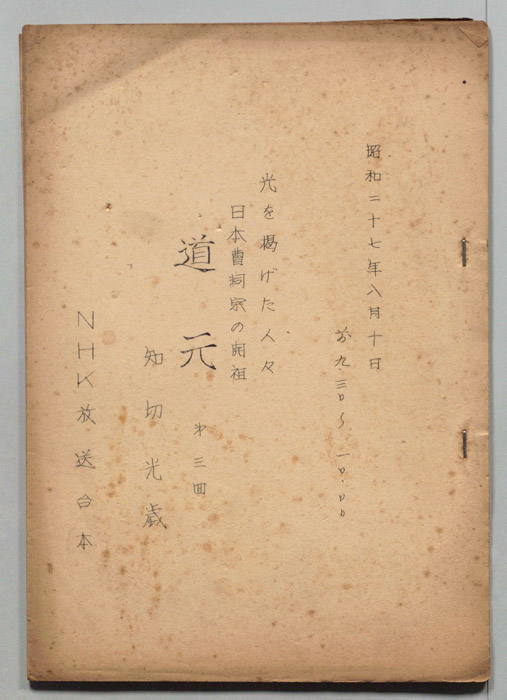 昭和二十七年八月十日
前九.三〇〜一〇.〇〇
光を掲げた人々
日本曹洞宗の開祖
道元 第三回
知切光歳
NHK放送台本